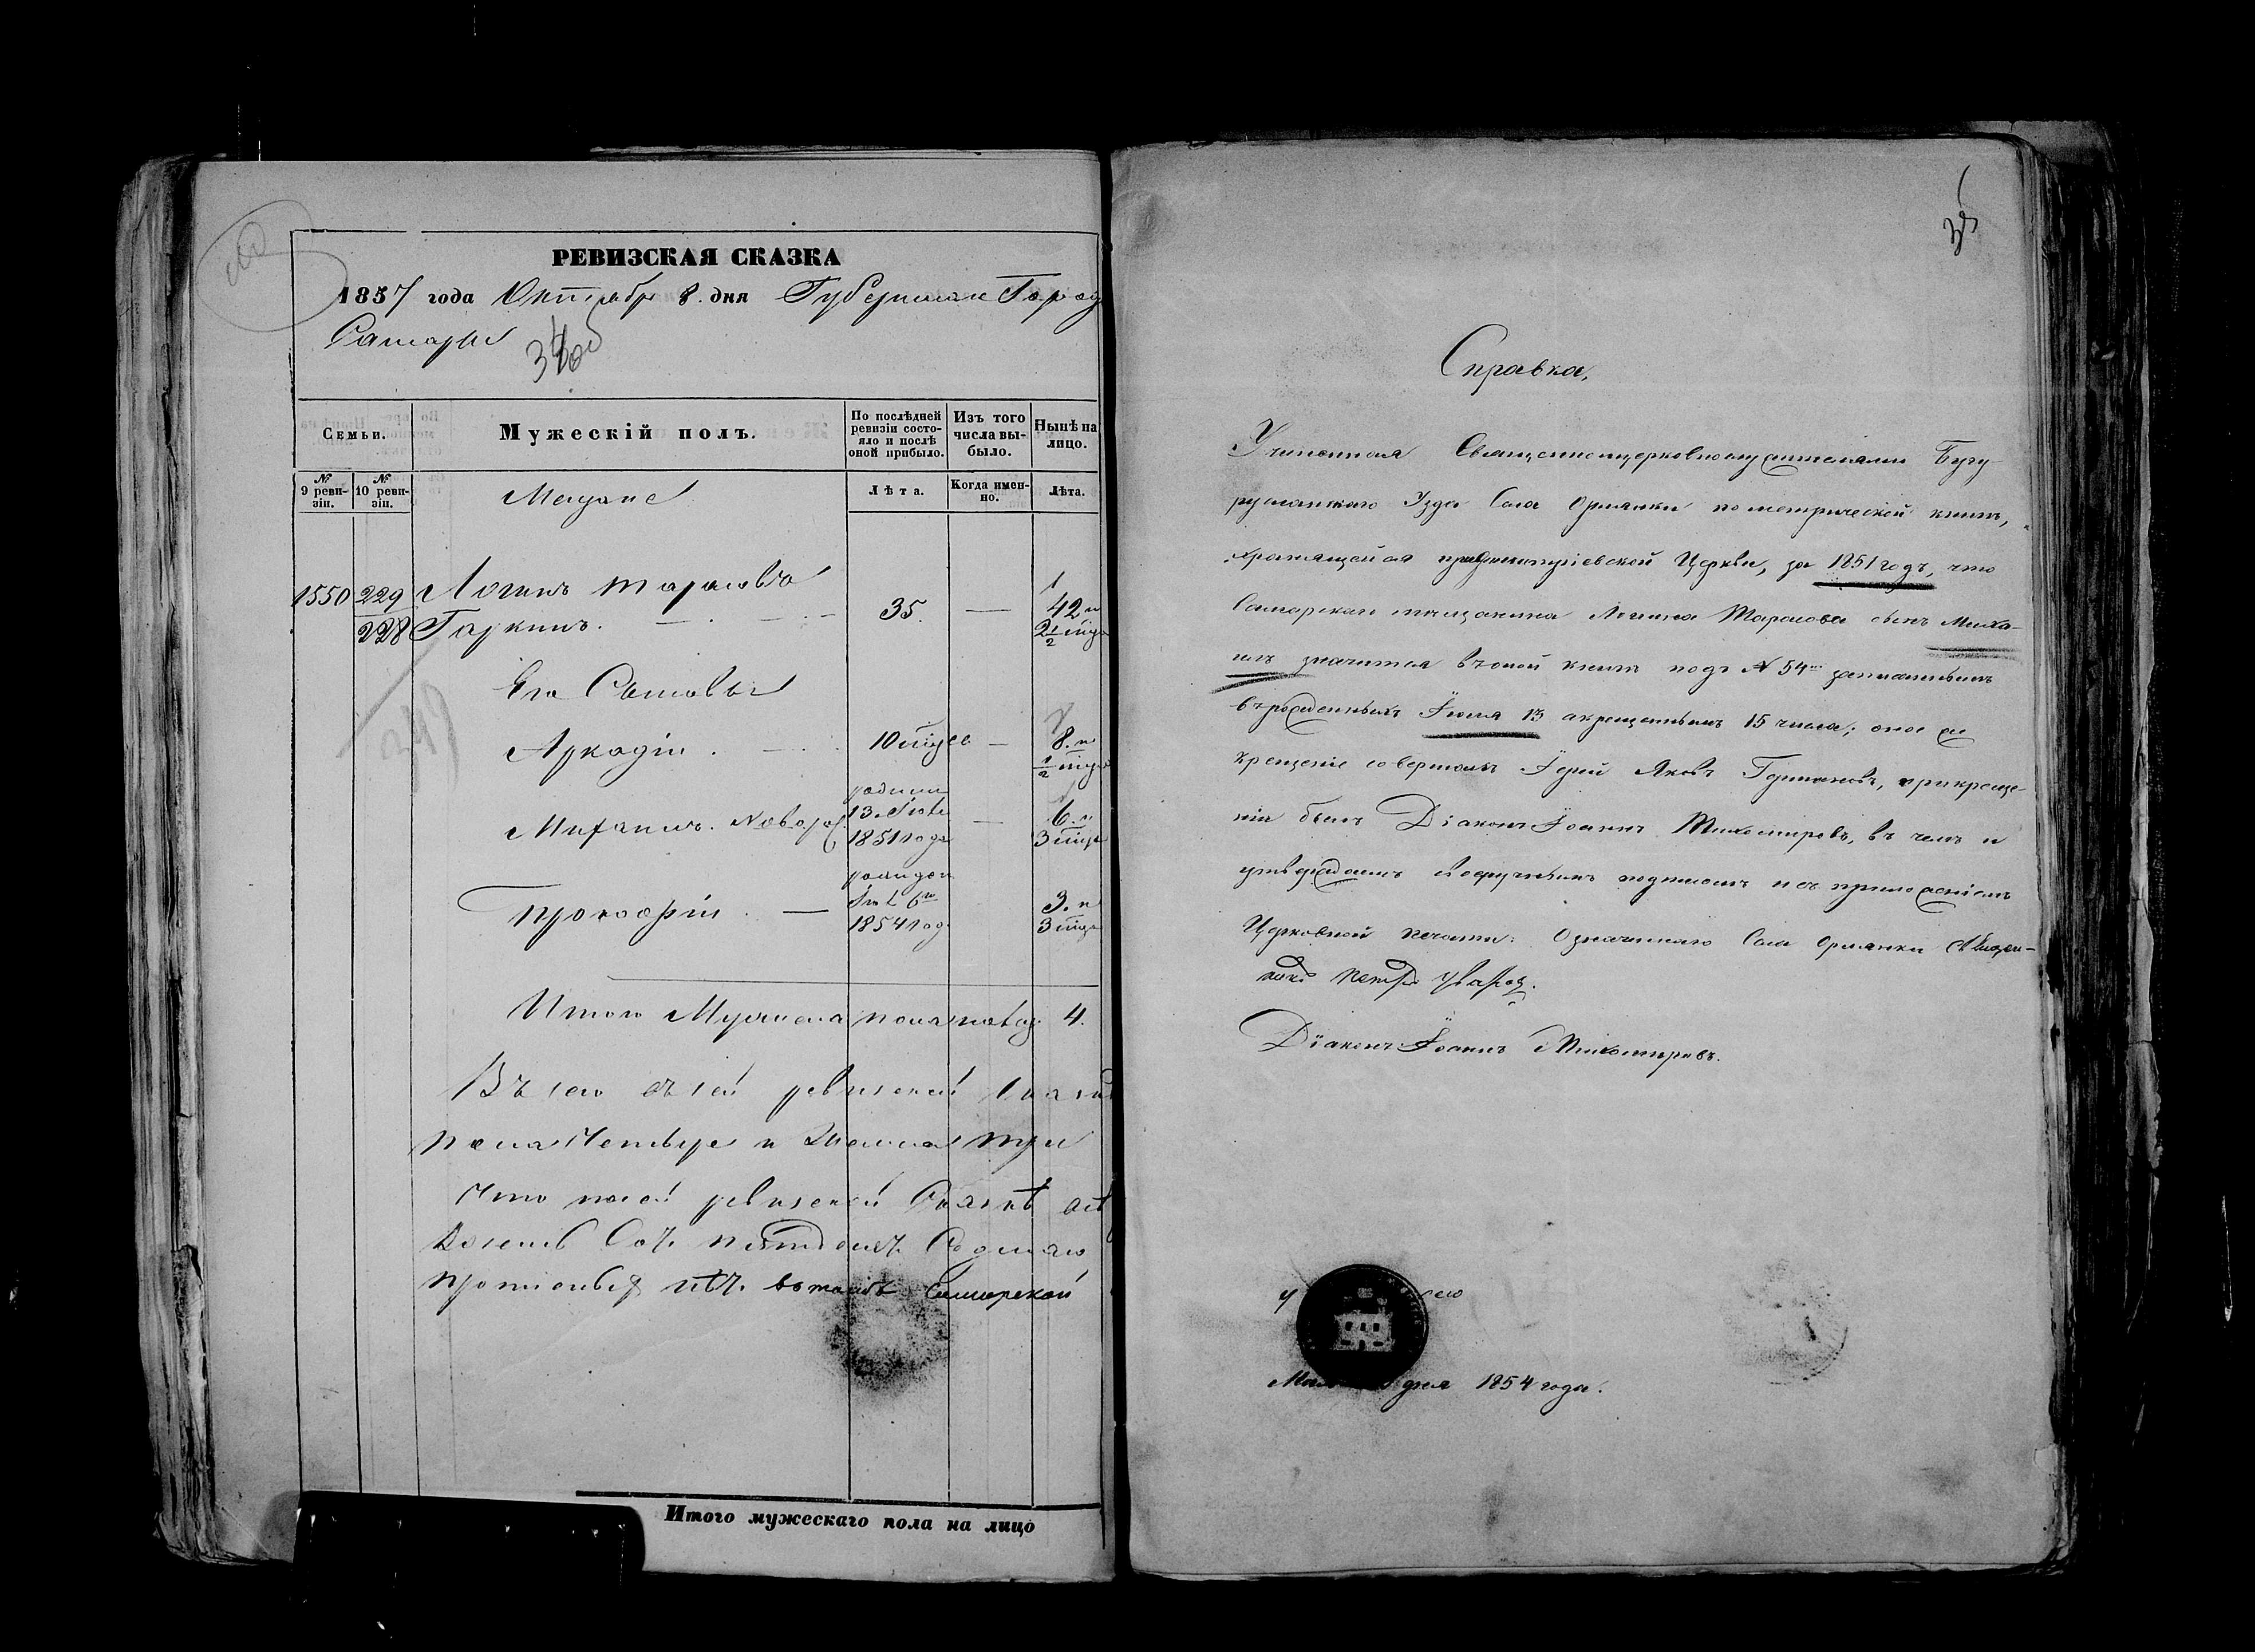 РЕВИЗСКАЯ СКАЗКА
1857 года Октября 8. дня Губернскаго Город
Самары
34 об
Семьи.
Мужескій полъ.
По послѣдней ревизіи состояло и послѣ оной прибыло.
Изъ того числа выбыло.
Нынѣ на лицо.
№ 9 ревизіи.
№ 10 ревизіи.
Мещане
Лѣта.
Когда именно.
Лѣта.
1550 229 Логинъ Тарасовъ 1
228 Гаркинъ. 35. — 42 и
2 1/2 мѣся
Его Сыновья
Аркадій . 10 мѣсе — 8. и
1/2 мѣся
родили
Михаилъ. Новорож 13 Июля — 6. и
1851 года 3 мѣся
Прокофій . — 6го 3. и
1854 год 3 мѣся
Итого Мужеска пола на лицо 4.
Въ сего въ сей ревизской сказкѣ
пола Четыре и Женска три
Что по сей ревизской Сказкѣ всѣ
противъ нѣтъ въ томъ Самарской
Итого мужескаго пола на лицо
35
Справка,
Учиненная Священноцерковнослужителями Бугу-
русланскаго Уѣзда Села Орлянки по метрической книгѣ,
хранящейся придмитріевской Церкви, за 1851 годъ, что
Самарскаго мещанина Логина Тарасова сынъ Миха-
илъ значится въ оной книгѣ подъ № 54м записаннымъ
въ рожденныхъ Іюля 13 а крещеннымъ 15 числа; оное
крещеніе совершалъ Іерей Яковъ , при креще-
ніи былъ Діаконъ Іоаннъ Тихомировъ, въ чемъ и
утверждаемъ своеручнымъ подписомъ и съ приложеніемъ
Церковной печати: Означеннаго Села Орлянки Священ-
никъ Петръ Уваров.
Діаконъ Іоаннъ Тихомировъ.
дня 1854 года.